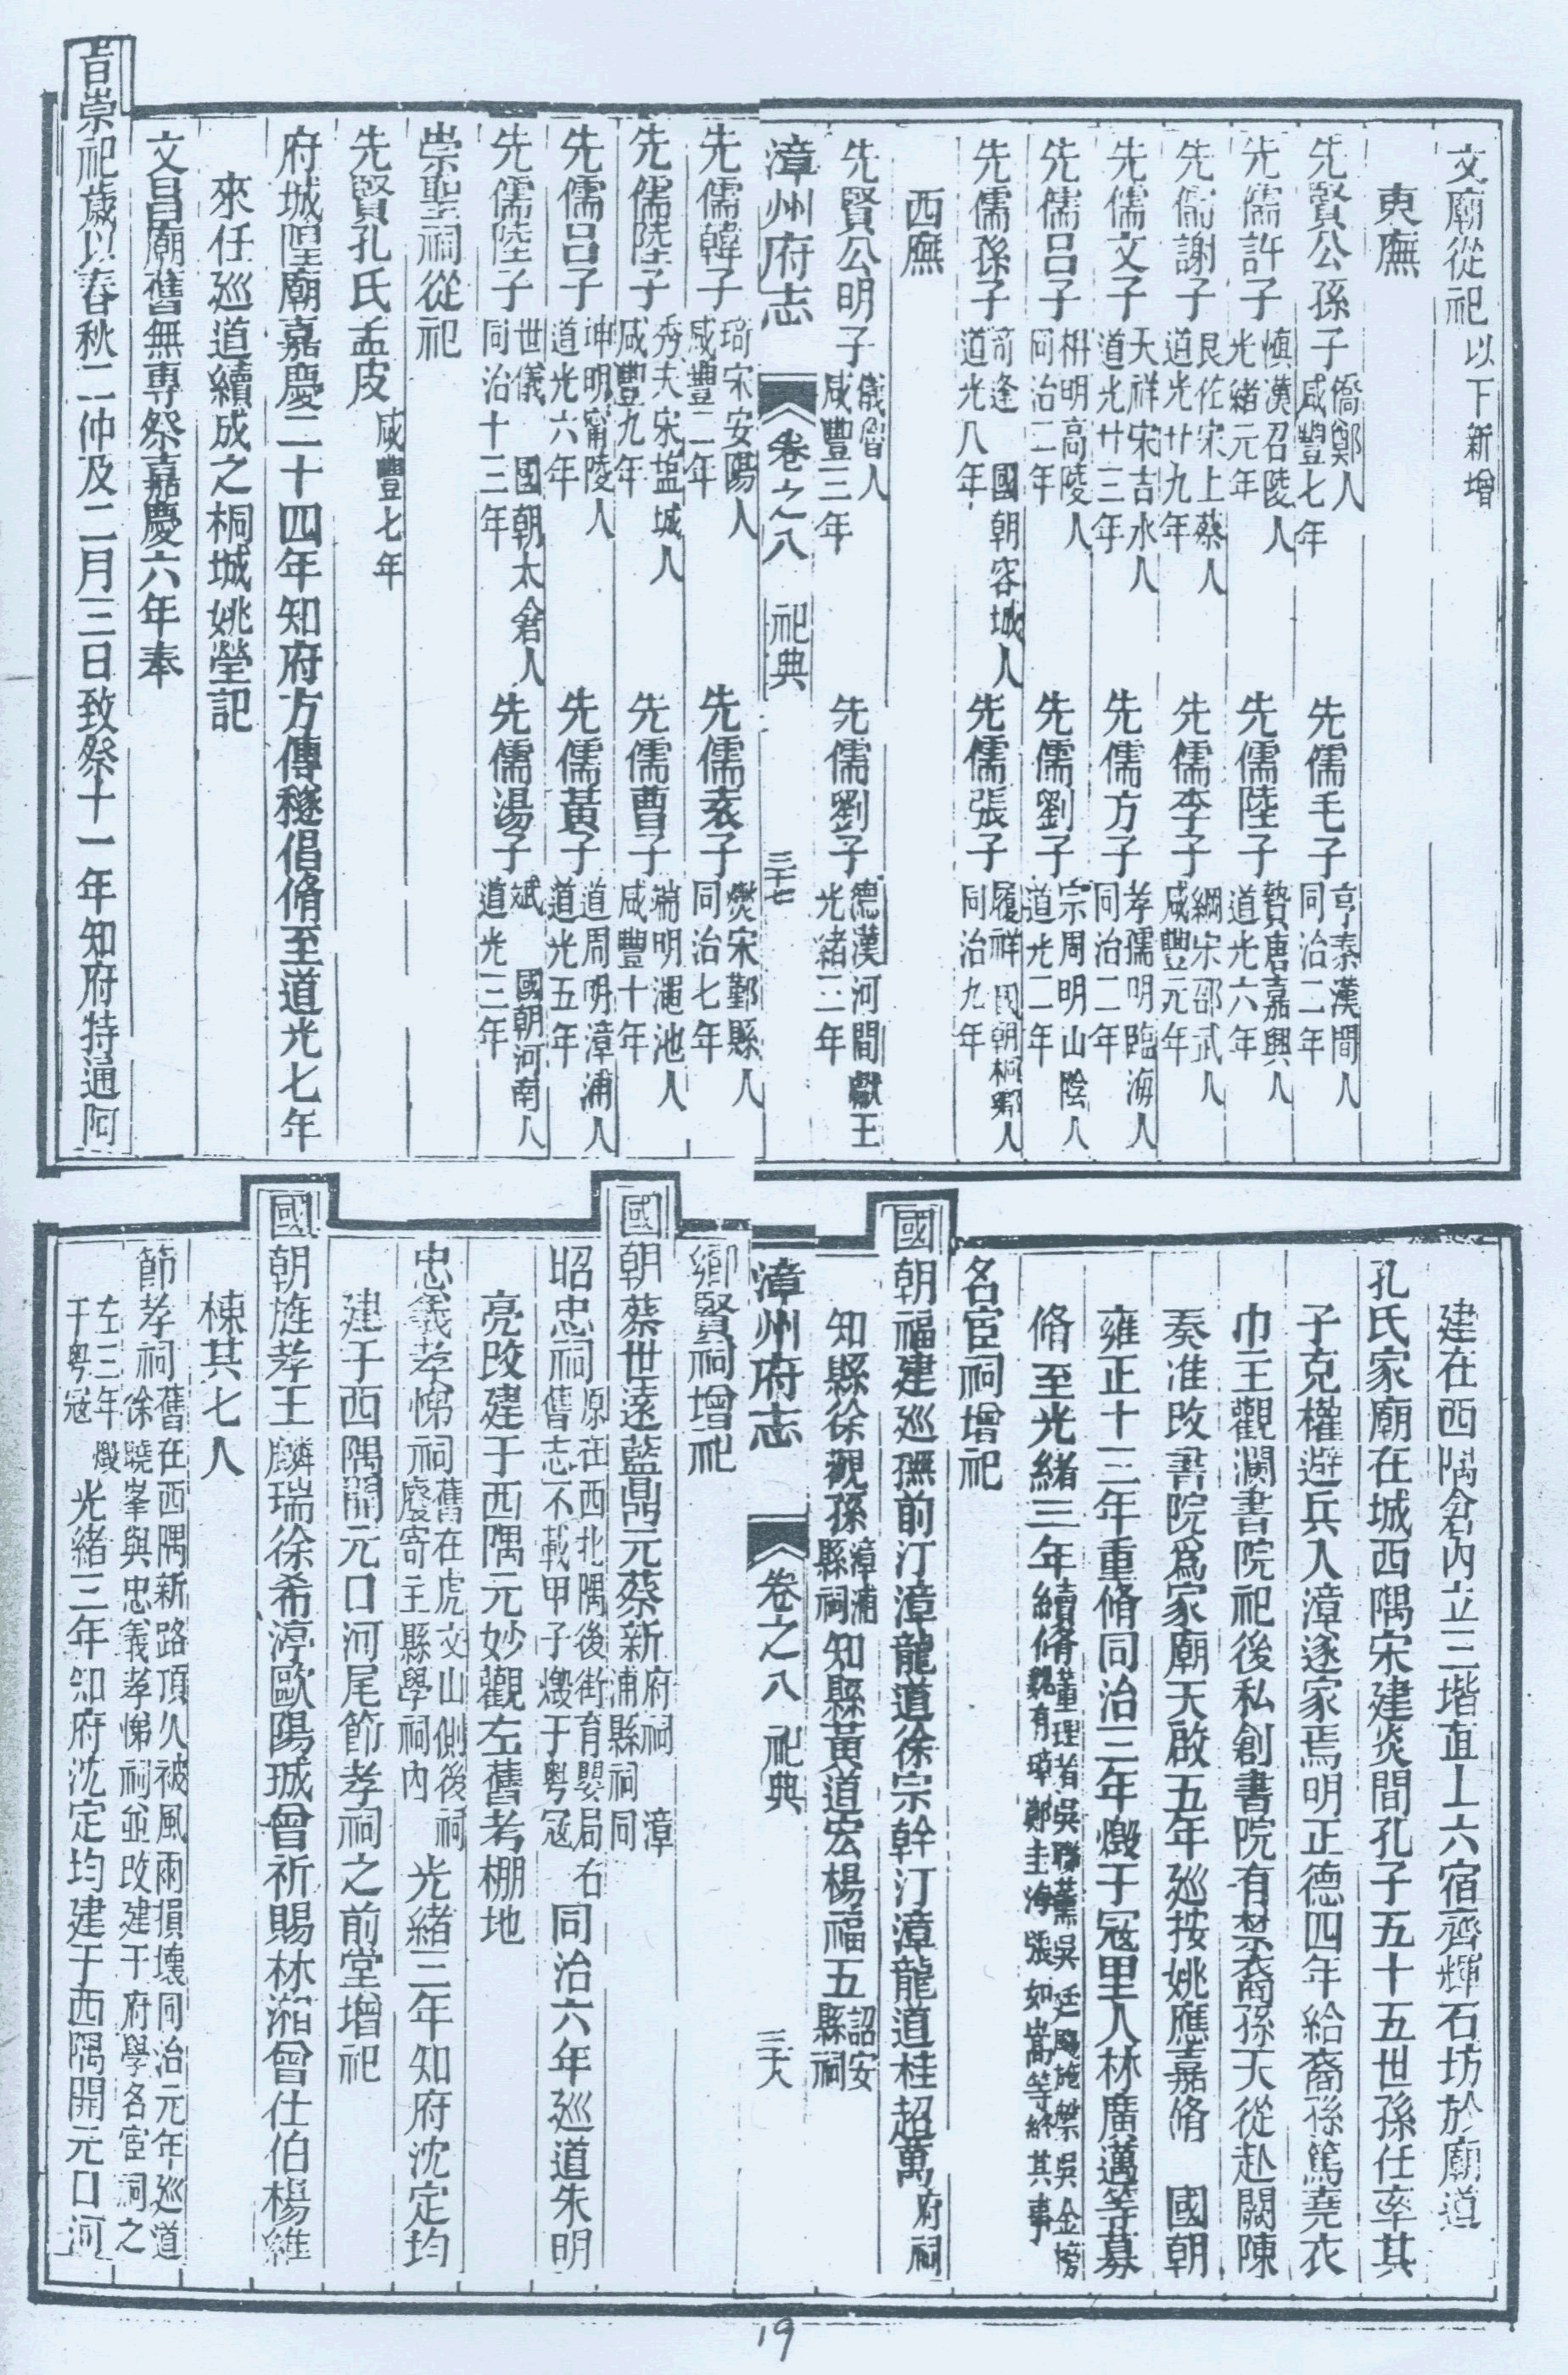 文廟從祀以下新增
東廡
先賢公孫子僑鄭人咸豐七年 先儒毛子亨秦漢間人同治二年
先儒許子慎漢召陵人光緒元年 先儒陸子贄唐嘉興人道光六年
先儒謝子良佐宋上蔡人道光廿九年 先儒李子綱宋邵武人咸豐元年
先儒文子天祥宋吉水人道光廿三年 先儒方子孝儒明臨海人同治二年
先儒呂子柟明高陵人同治二年 先儒劉子宗周明山陰人道光二年
先儒孫子奇逢 國朝容城人道光八年 先儒張子履祥 國朝桐鄉人同治九年
西廡
先賢公明子儀魯人咸豐三年 先儒劉子德漢河間獻王光緒三年
漳州府志 卷之八 祀典 三十七
先儒韓子琦宋安陽人咸豐二年 先儒袁子燮宋鄞縣人同治七年
先儒陸子秀夫宋塩城人咸豐九年 先儒曹子端明澠池人咸豐十年
先儒呂子坤明甯陵人道光六年 先儒黃子道周明漳浦人道光五年
先儒陸子世儀 國朝太倉人同治十三年 先儒湯子斌 國朝河南人道光三年
崇聖祠從祀
先賢孔氏孟皮咸豐七年
府城隍廟嘉慶二十四年知府方傳穟倡脩至道光七年
來任巡道續成之桐城姚瑩記
文昌廟舊無專祭嘉慶六年奉
旨崇祀歲以春秋二仲及二月三日致祭十一年知府特通阿
建在西隅倉內立三堦直上六宿齊輝石坊於廟道
孔氏家廟在城西隅宋建炎間孔子五十五世孫任率其
子克權避兵入漳遂家焉明正德四年給裔孫篤堯衣
巾主觀瀾書院祀後私創書院有禁裔孫天從赴闕陳
奏准改書院爲家廟天啟五年巡按姚應嘉脩 國朝
雍正十三年重脩同治三年燬于寇里人林廣邁等募
脩至光緒三年續脩董理者吳聯薰吳廷颺施㯋吳金榜魏有璋鄭圭海張如嵩等終其事
名宦祠增祀
國朝福建巡撫前汀漳龍道徐宗幹汀漳龍道桂超萬府祠
知縣徐觀孫漳浦縣祠知縣黃道宏楊福五詔安縣祠
漳州府志 卷之八 祀典 三十八
鄉賢祠增祀
國朝蔡世遠藍鼎元蔡新府祠 漳浦縣祠同
昭忠祠原在西北隅後街育嬰局右舊志不載甲子燬于粵寇同治六年巡道朱明
亮改建于西隅元妙觀左舊考棚地
忠義孝悌祠舊在虎文山側後祠廢寄主縣學祠內光緒三年知府沈定均
建于西隅開元口河尾節孝祠之前堂增祀
國朝旌孝王麟瑞徐希渟歐陽珹曾祈賜林湘曾仕伯楊維
棟其七人
節孝祠舊在西隅新路頂久被風雨損壞同治元年巡道徐曉峯與忠義孝悌祠並改建于府學名宦祠之
左三年燬于粵寇光緒三年知府沈定均建于西隅開元口河
19